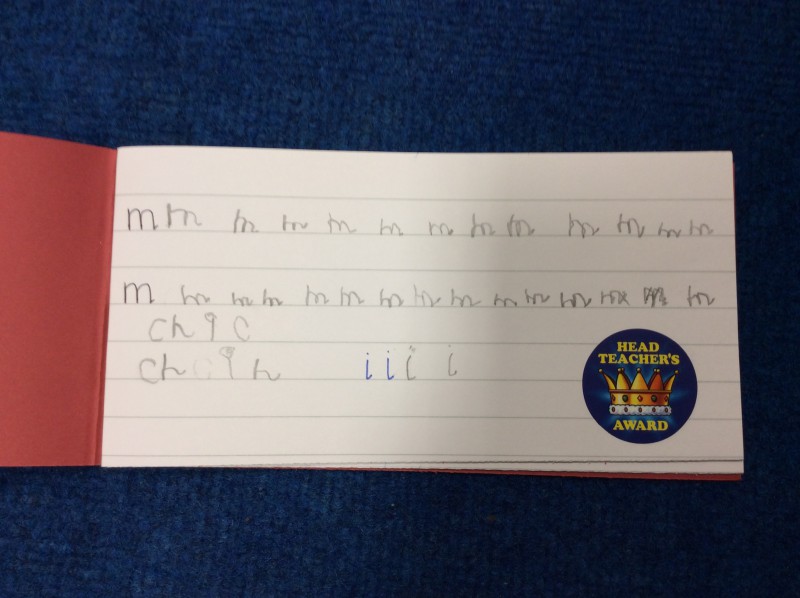 m m m m m m m m m m m m m
m m m m m m m m m m m m m m m
ch i c
ch i n i i i i
HEAD
TEACHER'S
AWARD